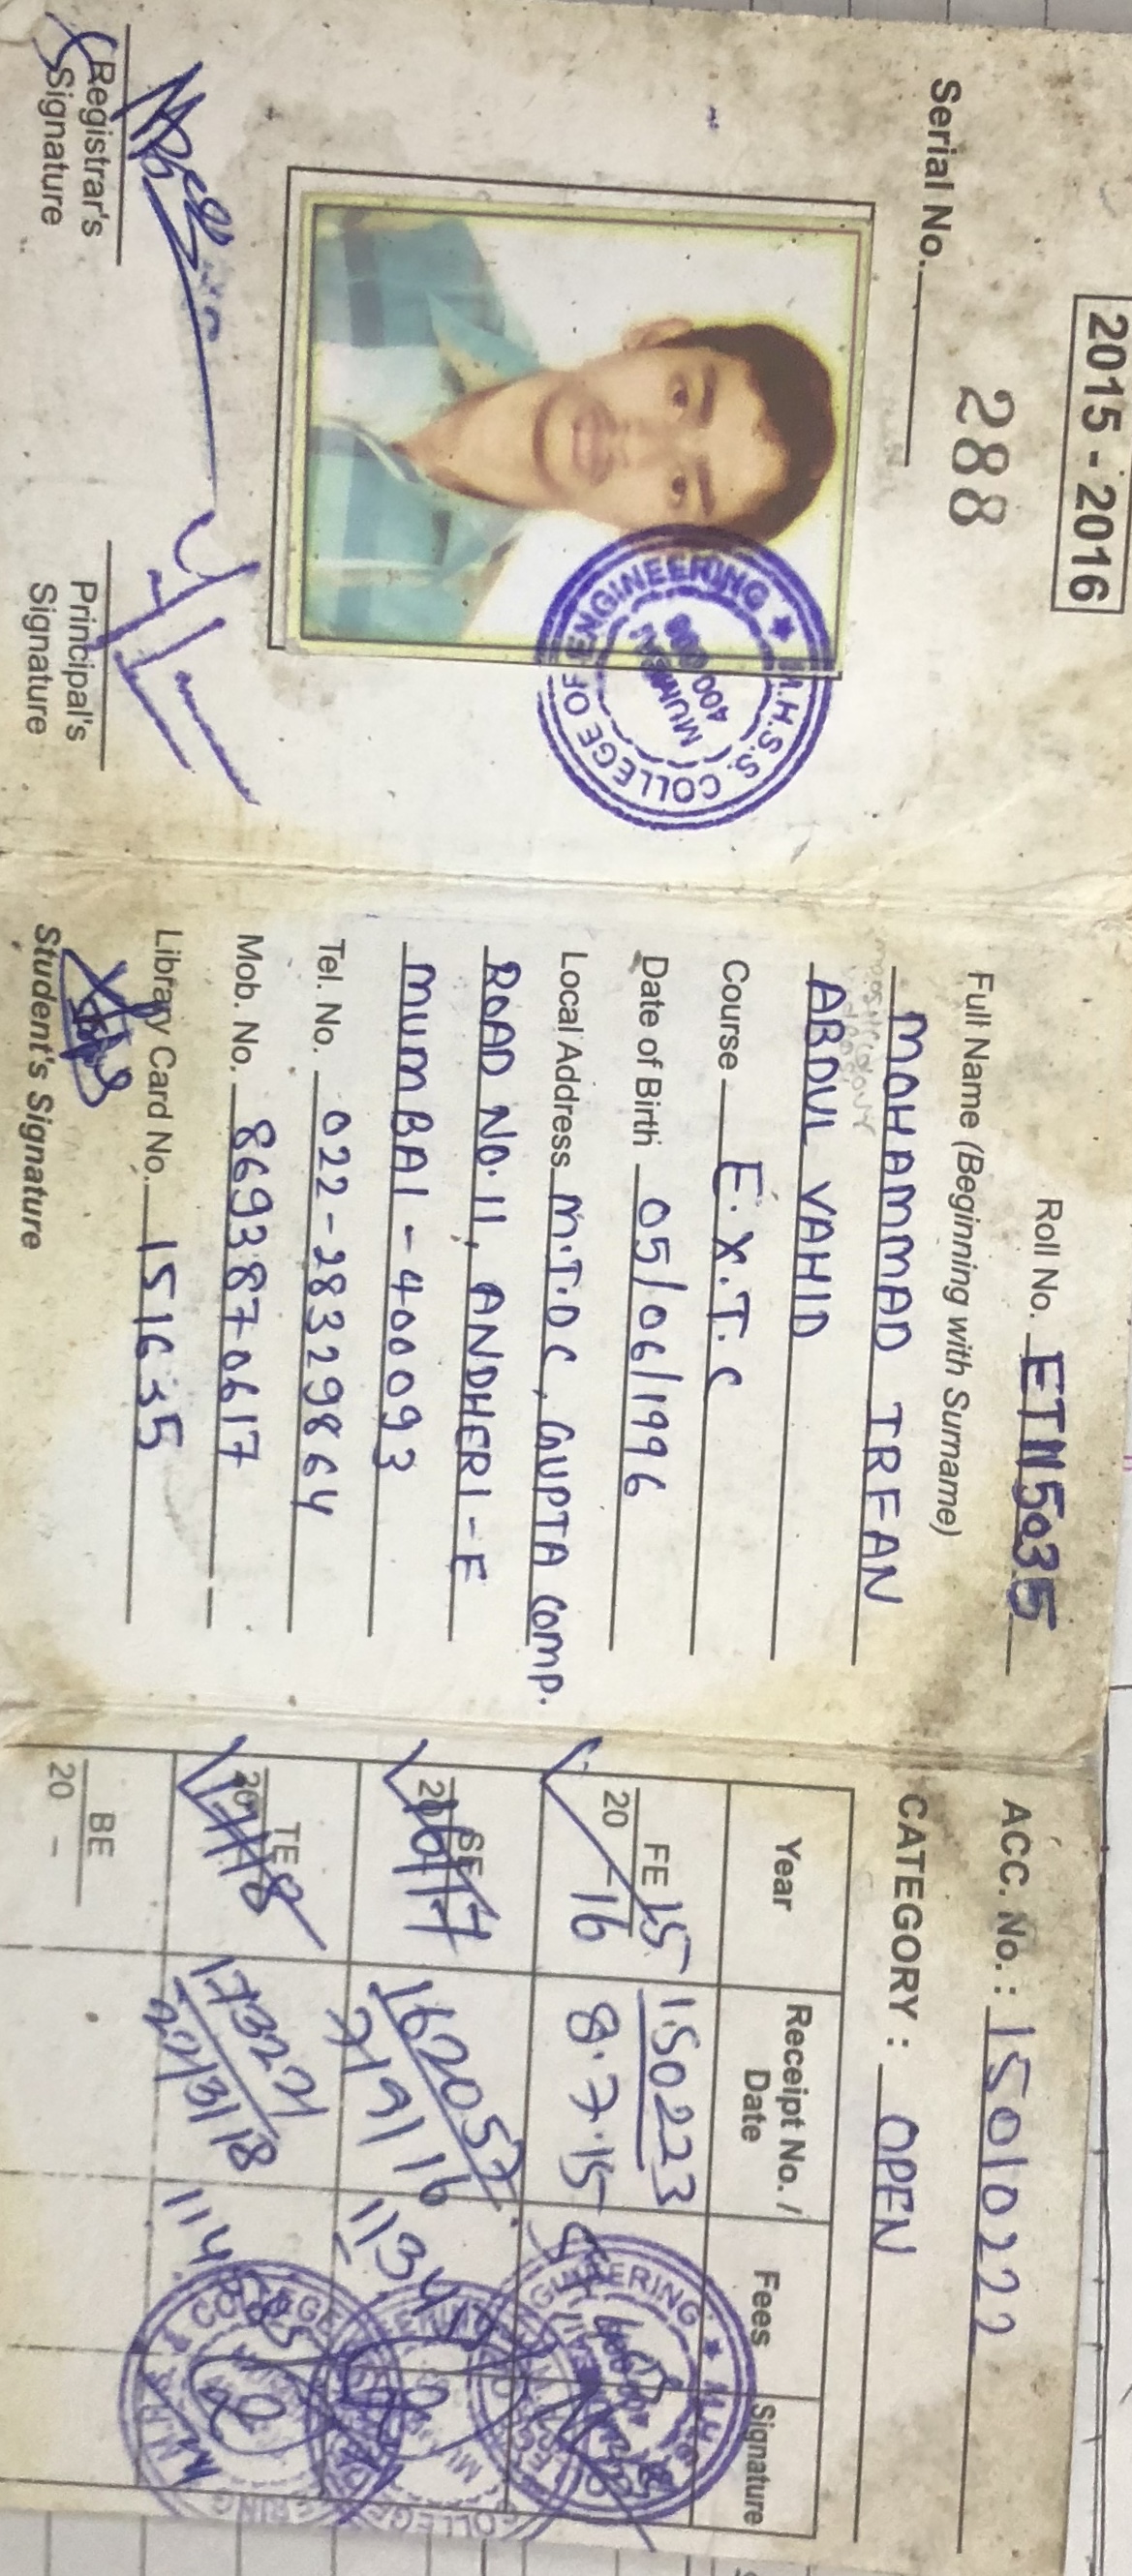 2015 - 2016
Serial No. 288
M.H.S.S. COLLEGE OF ENGINEERING ★
MUMBAI
400 008
Registrar's
Signature
Principal's
Signature
Roll No. ETN5035
Full Name (Beginning with Surname)
MOHAMMAD IRFAN
ABDUL VAHID
Course E.X.T.C
Date of Birth 05/06/1996
Local Address M.I.D.C, GUPTA COMP.
ROAD NO.11, ANDHERI-E
MUMBAI-400093
Tel. No. 022-28329864
Mob. No. 8693870617
Library Card No. 151635
Student's Signature
ACC. No.: 1501022
CATEGORY: OPEN
Year Receipt No. / Date Fees Signature
FE 2015-16 150223
8.7.15
SE 2016-17 162057
7/9/16
TE 2017-18
22/3/18
BE
20 -